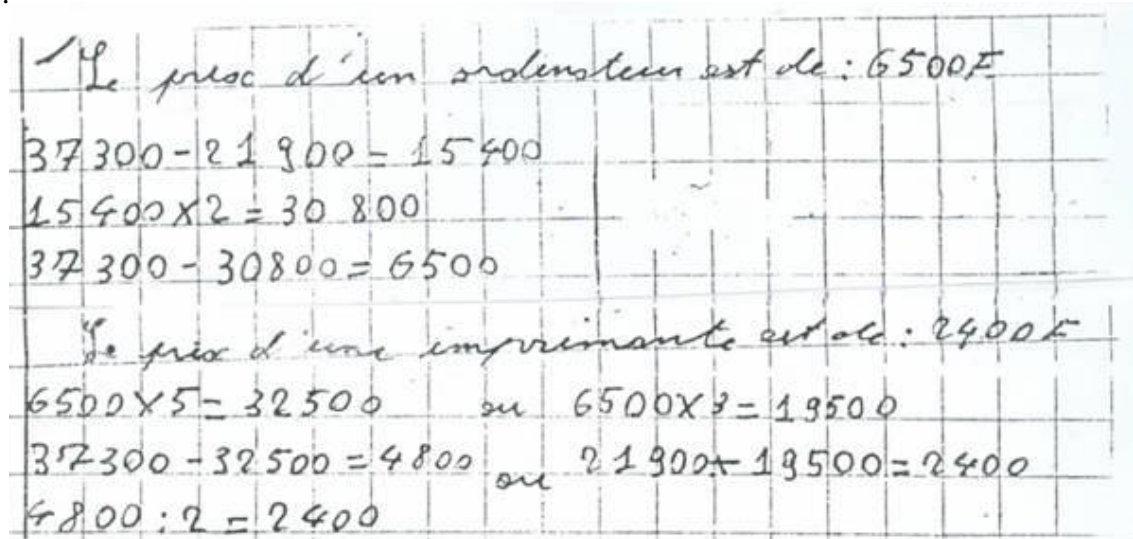 Le prix d'un ordinateur est de : 6500F
37300-21900=15400
15400×2=30 800
37 300-30800=6500
Le prix d'une imprimante est de : 2400F
6500×5=32500 ou 6500×3=19500
37300-32500=4800 ou 21900-19500=2400
4800:2=2400